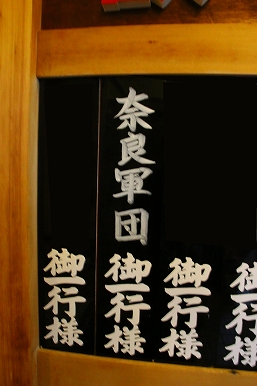 御一行様
御一行様
奈良軍団御一行様
御一行様